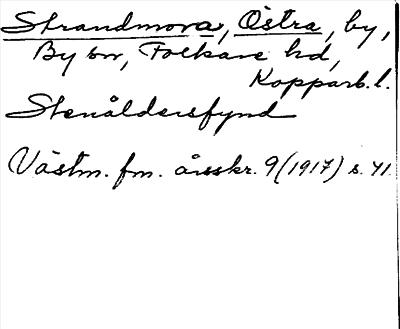 Strandmora, Östra, by,
By sn, Folkare hd,
Kopparb. l.
Stenåldersfynd
Västm. fm. årsskr. 9 (1917) s. 41.